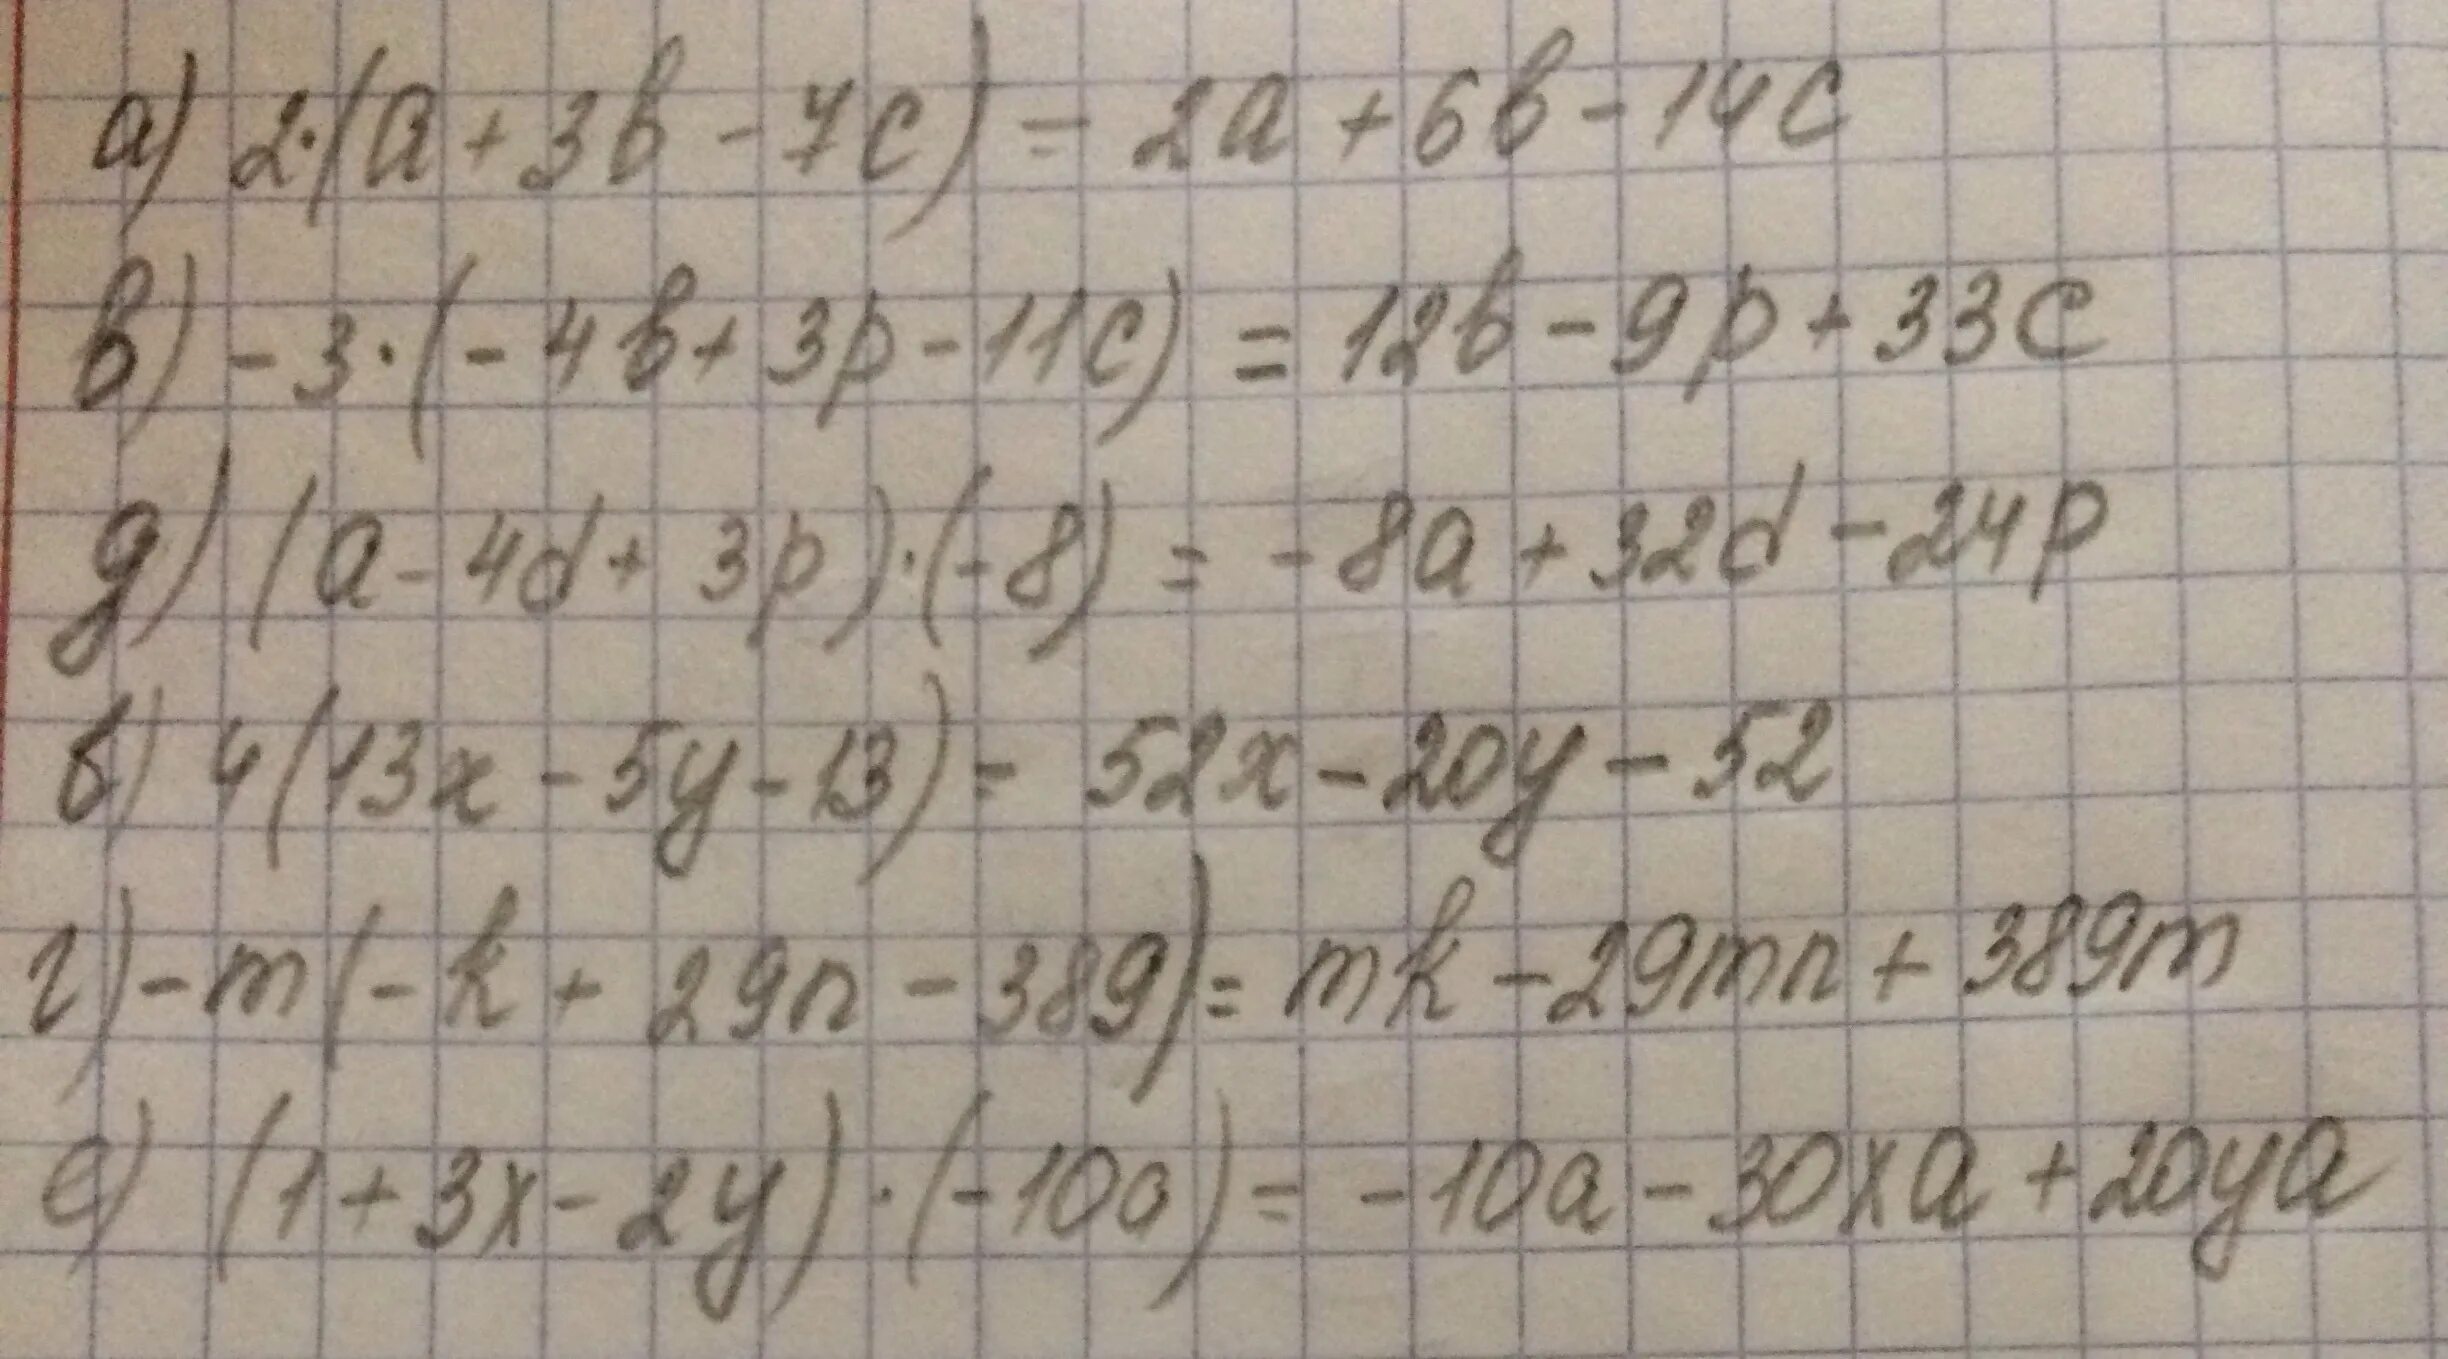 а) 2·(a + 3b - 7c) = 2a + 6b - 14c
в) - 3·(- 4b + 3p - 11c) = 12b - 9p + 33c
д) (a - 4d + 3p)·(-8) = - 8a + 32d - 24p
б) 4(13x - 5y - 13) = 52x - 20y - 52
г) - m(- k + 29n - 389) = mk - 29mn + 389m
е) (1 + 3x - 2y)·(-10a) = - 10a - 30xa + 20ya